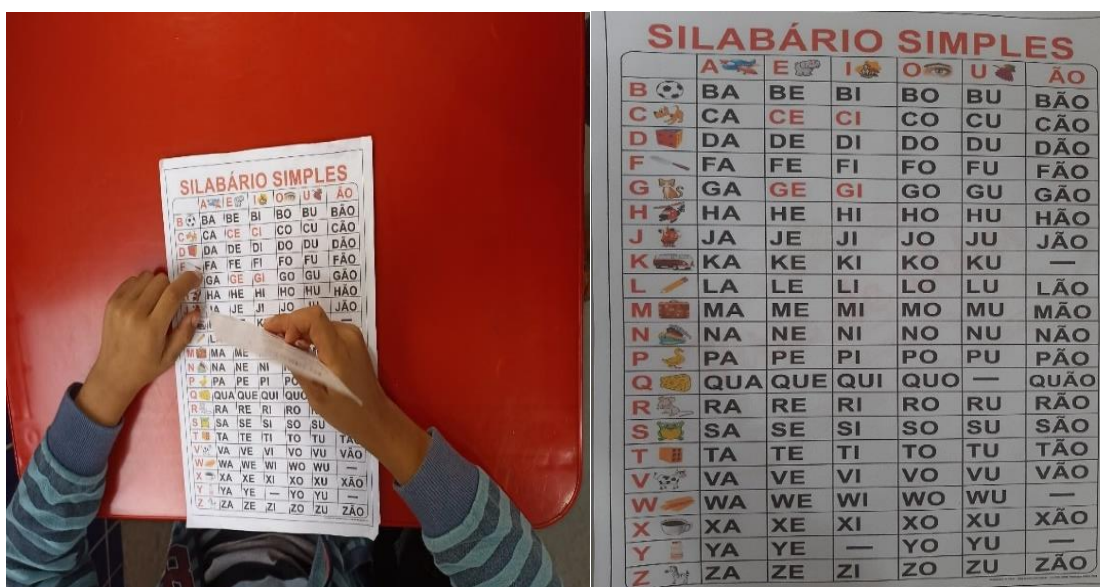 SILABÁRIO SIMPLES
A E I O U ÃO
B BA BE BI BO BU BÃO
C CA CE CI CO CU CÃO
D DA DE DI DO DU DÃO
F FA FE FI FO FU FÃO
GA GE GI GO GU GÃO
HA HE HI HO HU HÃO
JA JE JI JO JU JÃO
K —
L
M MA ME
N NA NE NI
P PA PE PI PO
Q QUA QUE QUI QUO
R RA RE RI RO
S SA SE SI SO SU
T TA TE TI TO TU TÃO
V VA VE VI VO VU VÃO
W WA WE WI WO WU —
X XA XE XI XO XU XÃO
Y YA YE — YO YU —
Z ZA ZE ZI ZO ZU ZÃO
SILABÁRIO SIMPLES
A E I O U ÃO
B BA BE BI BO BU BÃO
C CA CE CI CO CU CÃO
D DA DE DI DO DU DÃO
F FA FE FI FO FU FÃO
G GA GE GI GO GU GÃO
H HA HE HI HO HU HÃO
J JA JE JI JO JU JÃO
K KA KE KI KO KU —
L LA LE LI LO LU LÃO
M MA ME MI MO MU MÃO
N NA NE NI NO NU NÃO
P PA PE PI PO PU PÃO
Q QUA QUE QUI QUO — QUÃO
R RA RE RI RO RU RÃO
S SA SE SI SO SU SÃO
T TA TE TI TO TU TÃO
V VA VE VI VO VU VÃO
W WA WE WI WO WU —
X XA XE XI XO XU XÃO
Y YA YE — YO YU —
Z ZA ZE ZI ZO ZU ZÃO